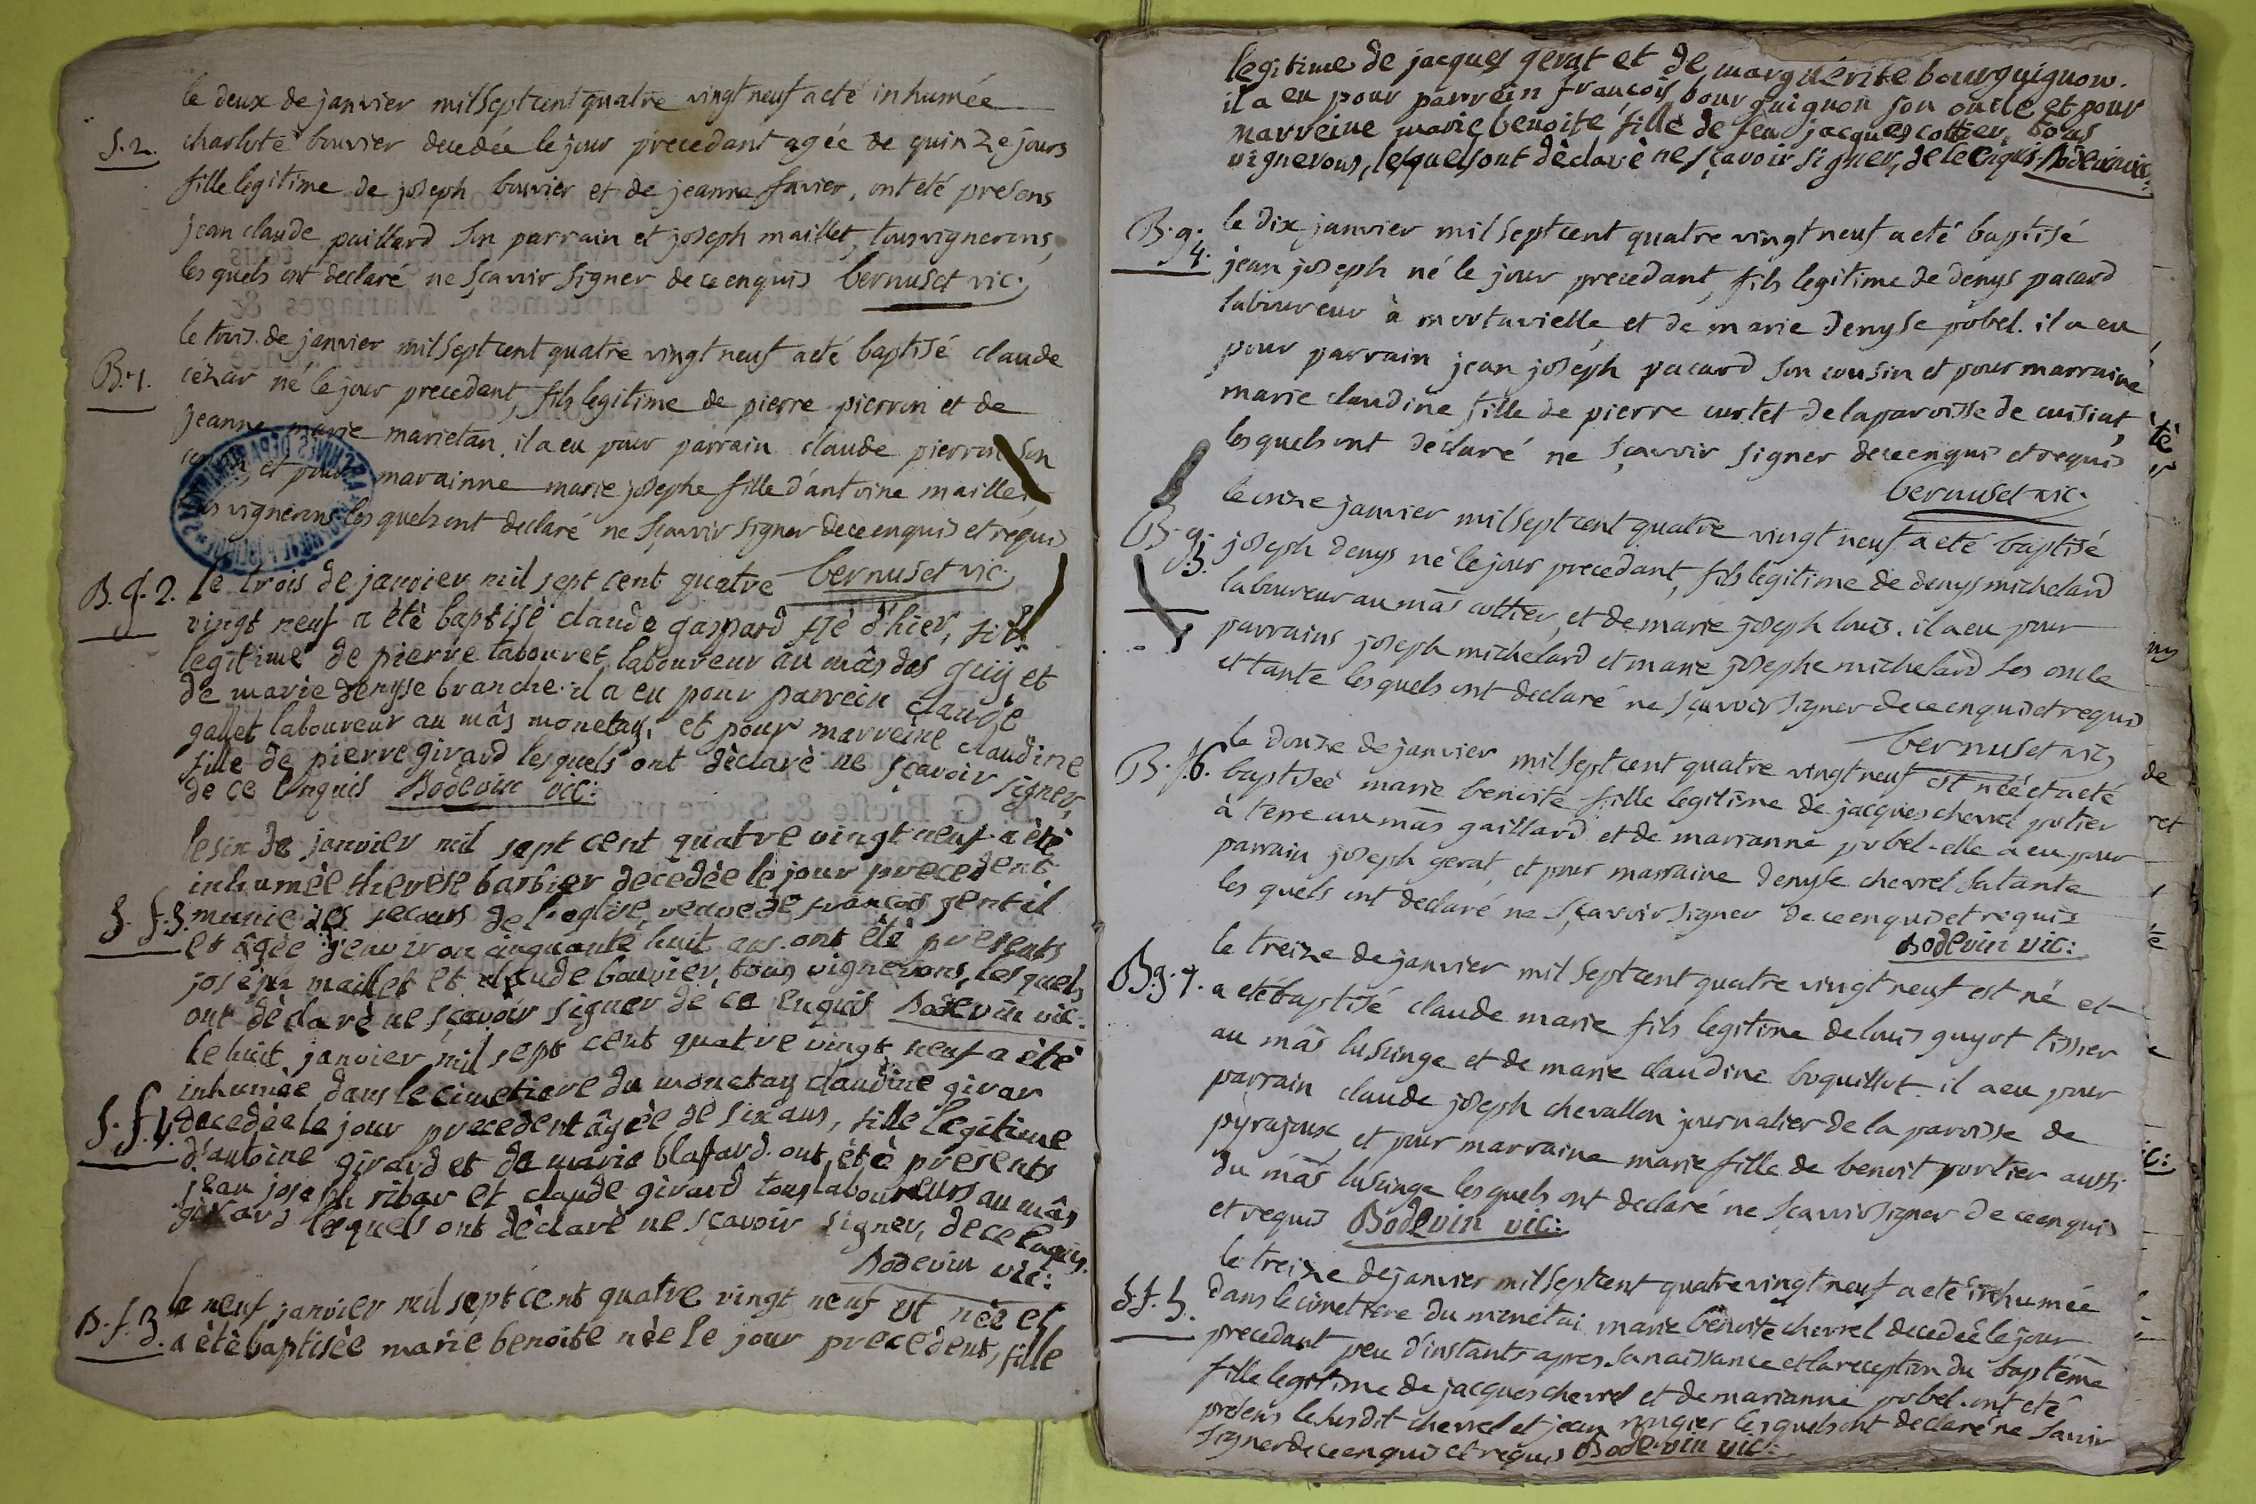 le deux de janvier mil sept cent quatre vingt neuf a eté inhumée
S. 2. charlote bouvier decedée le jour precedant agée de quinze jours
fille legitime de joseph bouvier et de jeanne favier, ont eté presens
jean claude paillard son parrain et joseph maillet, tous vignerons,
les quels ont declaré ne sçavoir signer de ce enquis bernuset vic.
le trois de janvier mil sept cent quatre vingt neuf a eté baptisé claude
B. 1. cézar né le jour precedent, fils legitime de pierre pierron et de
jeanne marie marietan. il a eu pour parrain claude pierron son
et pour marainne marie josephe fille d'antoine maillet
vignerons les quels ont declaré ne sçavoir signer de ce enquis et requis
bernuset vic.
B. g. 2. le trois de janvier mil sept cent quatre
vingt neuf a étè baptisé claude gaspard né d'hier, fils
legitime de pierre tabouret, laboureur au mâs des guÿ et
de marie denyse branche. il a eu pour parrein claude
gallet laboureur au mâs monetay, et pour marreine claudine
fille de pierre girard lesquels ont dèclarè ne sçavoir signer,
de ce enquis Bodevin vic:
le six de janvier mil sept cent quatre vingt neuf a étè
inhumèe therese barbier decedèe le jour precedent
S. f. 3. munie des secours de l'eglise, veuve de francois gentil
et âgèe d'environ cinquante huit ans. ont étè presents
joseph maillet et claude bouvier, tous vignerons, les quels
ont dèclarè ne sçavoir signer de ce enquis Bodevin vic:
le huit janvier mil sept cent quatre vingt neuf a étè
inhumèe dans le cimetiere du monetay claudine girar
S. f. 4. decedèe le jour precedent âgèe de six ans, fille legitime
d'antoine girard et de marie blafard. ont étè presents
jean joseph ribar et claude girard tous laboureurs au mâs
girard lesquels ont dèclarè ne sçavoir signer, de ce enquis.
Bodevin vic:
le neuf janvier mil sept cent quatre vingt neuf est nèe et
B. f. 3. a étè baptisèe marie benoite nèe le jour precedent, fille
legitime de jacques gerat et de marguérite bourguignon.
il a eu pour parrein francois bourguignon son oncle et pour
marreine marie benoite fille de feu jacques cottier, tous
vignerons, lesquels ont dèclarè ne sçavoir signer, de ce enquis. Bodevin vic:
B. g. 4. le dix janvier mil sept cent quatre vingt neuf a eté baptisé
jean joseph né le jour precedant, fils legitime de denys pacard
laboureur à mortavielle, et de marie denyse pobel. il a eu
pour parrain jean joseph pacard son cousin et pour marraine
marie claudine fille de pierre curtet de la paroisse de cuisiat,
les quels ont declaré ne sçavoir signer de ce enquis et requis
bernuset vic.
le onze janvier mil sept cent quatre vingt neuf a eté baptisé
B. g. 5. joseph denys né le jour precedant, fils legitime de denys michelard
laboureur au mâs cottier, et de marie joseph louis. il a eu pour
parrains joseph michelard et marie josephe michelard ses oncle
et tante les quels ont declaré ne sçavoir signer de ce enquis et requis
bernuset vic.
le douze de janvier mil sept cent quatre vingt neuf est née et a eté
B. f. 6. baptisée marie benoite fille legitime de jacques chevrel potier
à terre au mâs gaillard et de marianne pobel. elle a eu pour
parrain joseph gerat, et pour marraine denyse chevrel sa tante
les quels ont declaré ne sçavoir signer de ce enquis et requis
Bodevin vic:
le treize de janvier mil sept cent quatre vingt neuf est né et
B. g. 7. a eté baptisé claude marie fils legitime de louis guyot tissier
au mâs lusinge et de marie claudine boquillot. il a eu pour
parrain claude joseph chevallon journalier de la paroisse de
pyrajoux, et pour marraine marie fille de benoit portier aussi
du mâs lusinge les quels ont declaré ne sçavoir signer de ce enquis
et requis Bodevin vic:
le treize de janvier mil sept cent quatre vingt neuf a eté inhumée
S. f. 5. dans le cimetiere du monetai marie benoite chevrel decedée le jour
precedant peu d'instants apres sa naissance et la reception du baptême
fille legitime de jacques chevrel et de marianne pobel. ont eté
presens le susdit chevrel et jean rougier les quels ont declaré ne savoir
signer de ce enquis et requis Bodevin vic: